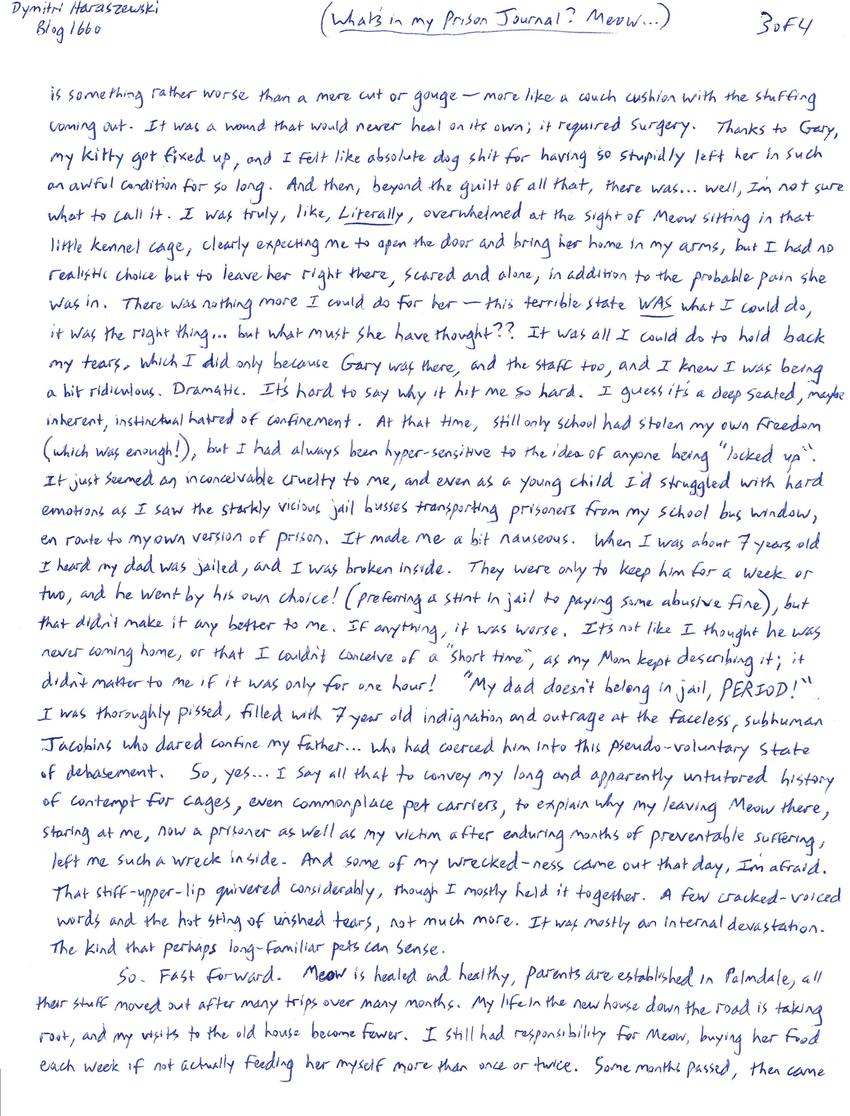 Dymitri Haraszewski
Blog 1660
(What's in my Prison Journal? Meow...)
3 of 4
is something rather worse than a mere cut or gouge – more like a couch cushion with the stuffing
coming out. It was a wound that would never heal on its own; it required surgery. Thanks to Gary,
my kitty got fixed up, and I felt like absolute dog shit for having so stupidly left her in such
an awful condition for so long. And then, beyond the guilt of all that, there was... well, I'm not sure
what to call it. I was truly, like, Literally, overwhelmed at the sight of Meow sitting in that
little kennel cage, clearly expecting me to open the door and bring her home in my arms, but I had no
realistic choice but to leave her right there, scared and alone, in addition to the probable pain she
was in. There was nothing more I could do for her – this terrible state WAS what I could do,
it was the right thing... but what must she have thought?? It was all I could do to hold back
my tears, which I did only because Gary was there, and the staff too, and I knew I was being
a bit ridiculous. Dramatic. It's hard to say why it hit me so hard. I guess it's a deep seated, maybe
inherent, instinctual hatred of confinement. At that time, still only school had stolen my own freedom
(which was enough!), but I had always been hyper-sensitive to the idea of anyone being "locked up".
It just seemed an inconceivable cruelty to me, and even as a young child I'd struggled with hard
emotions as I saw the starkly vicious jail busses transporting prisoners from my school bus window,
en route to my own version of prison. It made me a bit nauseous. When I was about 7 years old
I heard my dad was jailed, and I was broken inside. They were only to keep him for a week or
two, and he went by his own choice! (preferring a stint in jail to paying some abusive fine), but
that didn't make it any better to me. If anything, it was worse. It's not like I thought he was
never coming home, or that I couldn't conceive of a "short time", as my Mom kept describing it; it
didn't matter to me if it was only for one hour! "My dad doesn't belong in jail, PERIOD!"
I was thoroughly pissed, filled with 7 year old indignation and outrage at the faceless, subhuman
Jacobins who dared confine my father... who had coerced him into this pseudo-voluntary state
of debasement. So, yes... I say all that to convey my long and apparently untutored history
of contempt for cages, even commonplace pet carriers, to explain why my leaving Meow there,
staring at me, now a prisoner as well as my victim after enduring months of preventable suffering,
left me such a wreck inside. And some of my wrecked-ness came out that day, I'm afraid.
That stiff-upper-lip quivered considerably, though I mostly held it together. A few cracked-voiced
words and the hot sting of unshed tears, not much more. It was mostly an internal devastation.
The kind that perhaps long-familiar pets can sense.
So. Fast forward. Meow is healed and healthy, parents are established in Palmdale, all
their stuff moved out after many trips over many months. My life in the new house down the road is taking
root, and my visits to the old house become fewer. I still had responsibility for Meow, buying her food
each week if not actually feeding her myself more than once or twice. Some months passed, then came